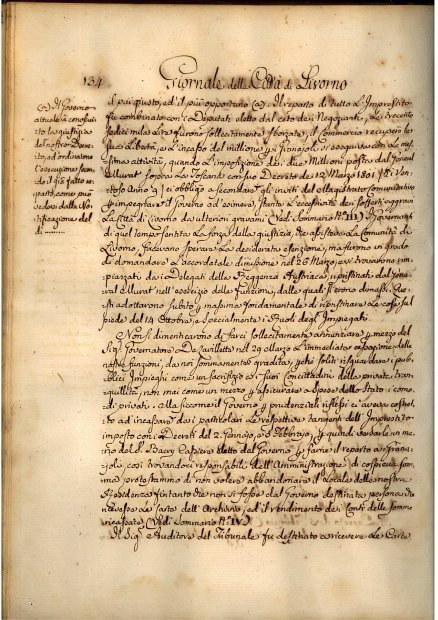 134
Giornale della Città di Livorno
(a) Il Governo
attuale à conosciu
to la giustizia
del nostro Decre
to, ed ordinatane
l'esecuzione secon
do il già fatto re
parto, come può
vedersi dalla No
tificazione del
dì
il più giusto, ed il più opportuno (a). Il reparto di tutto l'Imprestito
fu combinato con i Deputati eletti dal ceto dei Negozianti, le trecento
sedici mila lire furono sollecitamente sborzate, il commercio recuperò la
sua libertà, e l'incasso del milione ai Franzesi si eseguiva con la mes
sima attività, quando l'imposizione dei due Millioni posta dal General
Murat sopra la Toscana con suo Decreto
Anno 9 ci obbligò a secondare gli inviti del Magistrato Comunitativo
impegnare il Governo ad esimere, stante l'eccessività dei sofferti aggravi
la Città di Livorno da ulteriori gravami (Vedi Sommario N.° III) I Governanti
di quel tempo sentita la forza della giustizia, che assisteva la Comunità di
Livorno, facevano sperare la desiderata esenzione, ma furono in grado
di domandare l'accordatale dimissione nel 26 Marzo, essi trovavansi rim
piazzati dai Delegati della Reggenza Austriaca, ripristinati dal Gene
ral Murat nell'esercizio delle funzioni, dalle quali
adottarono subito la massima fondamentale di ripristinare le cose sul
piede del 14 Ottobre, e specialmente i Ruoli degli Impiegati.
Non si dimenticarono di farci sollecitamente annunziare per mezzo del
Sig. Governatore De Lavillette nel 29 Marzo l'immediata cessazione delle
nostre funzioni, da noi sommamente gradita, perchè soliti riguardare i pub
blici Impieghi come un sacrifizio ai suoi Concittadini della privata tran
quillità, non mai come un mezzo per assicurare a spese dello Stato i como
di privati. Ma siccome il Governo per prudenziali riflessi ci aveva costret
to ad incassare dai particolari le respettive tangenti dell'Imprestito
imposto con i Decreti del 2. Gennajo, e 6 Febbrajo, per quindi versarle in ma
no del S. Bacry Cassiere eletto dal Governo per farne il reparto ai Fran
zesi, così trovandoci responsabili dell'Amministrazione di cospicua som
ma protestammo di non volere abbandonare il Locale della nostra
Residenza fintanto che non si fosse dal Governo destinata persona per
ricevere le carte dell'Archivio, ed il rendimento dei Conti delle somme
incassate (Vedi Sommario N.° IV)
Il Sig.re Auditore del Tribunale fu destinato a ricevere le Carte